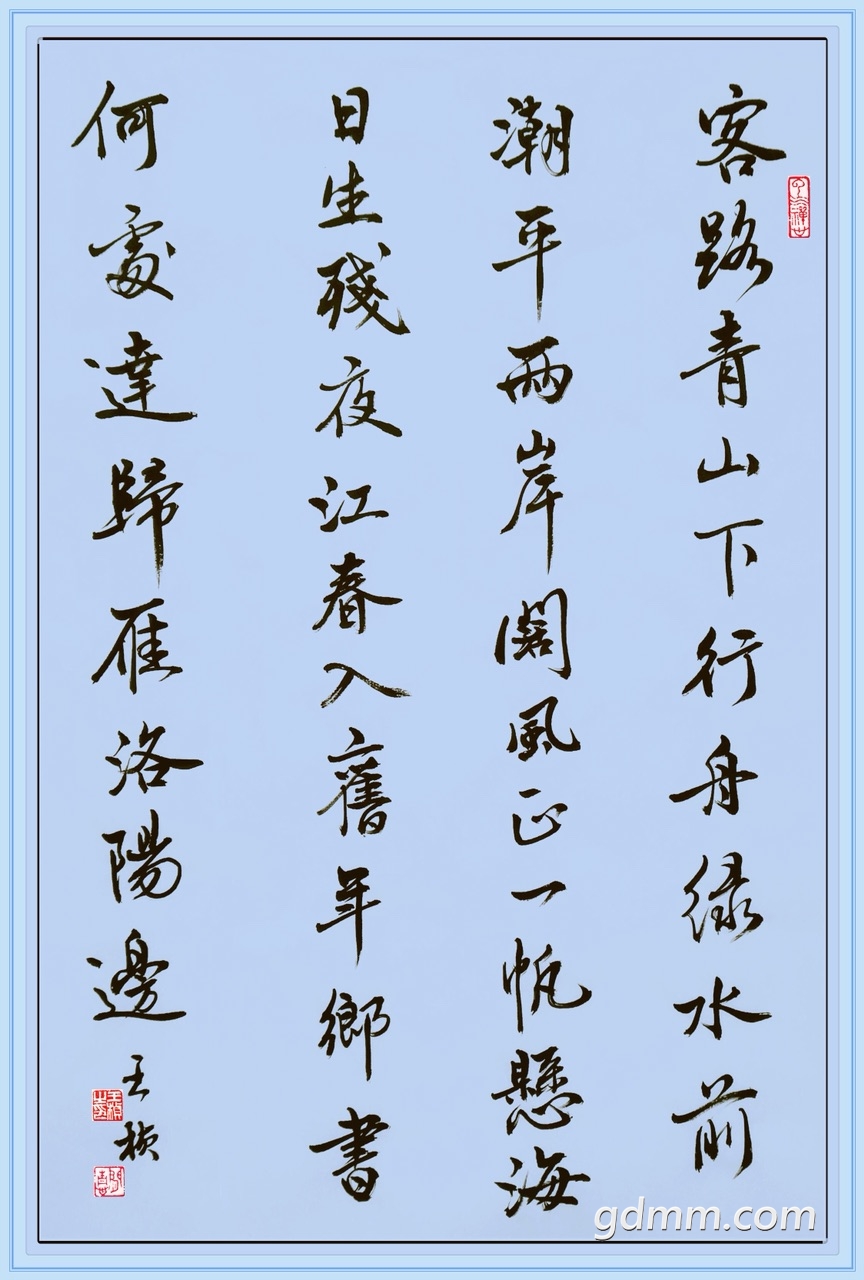 客路青山下行舟绿水前
潮平兩岸闊風正一帆懸海
日生殘夜江春入舊年鄉書
何處達歸雁洛陽邊
王桢
gdmm.com